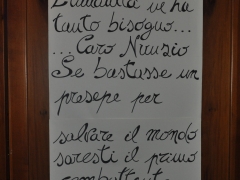 L'umanità ve ha
tanto bisogno...
...Caro Nunzio
Se bastasse un
presepe per
salvare il mondo
saresti il primo
combattente